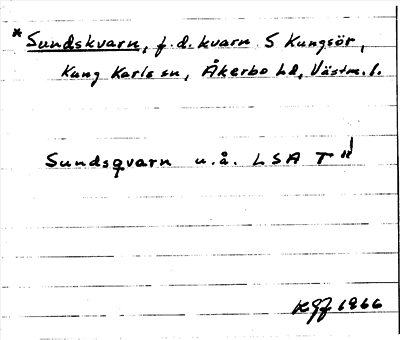 * Sundskvarn, f.d. kvarn S Kungsör,
Kung Karls sn, Åkerbo hd, Västm. l.
Sundsqvarn u.å. LSA T
1966